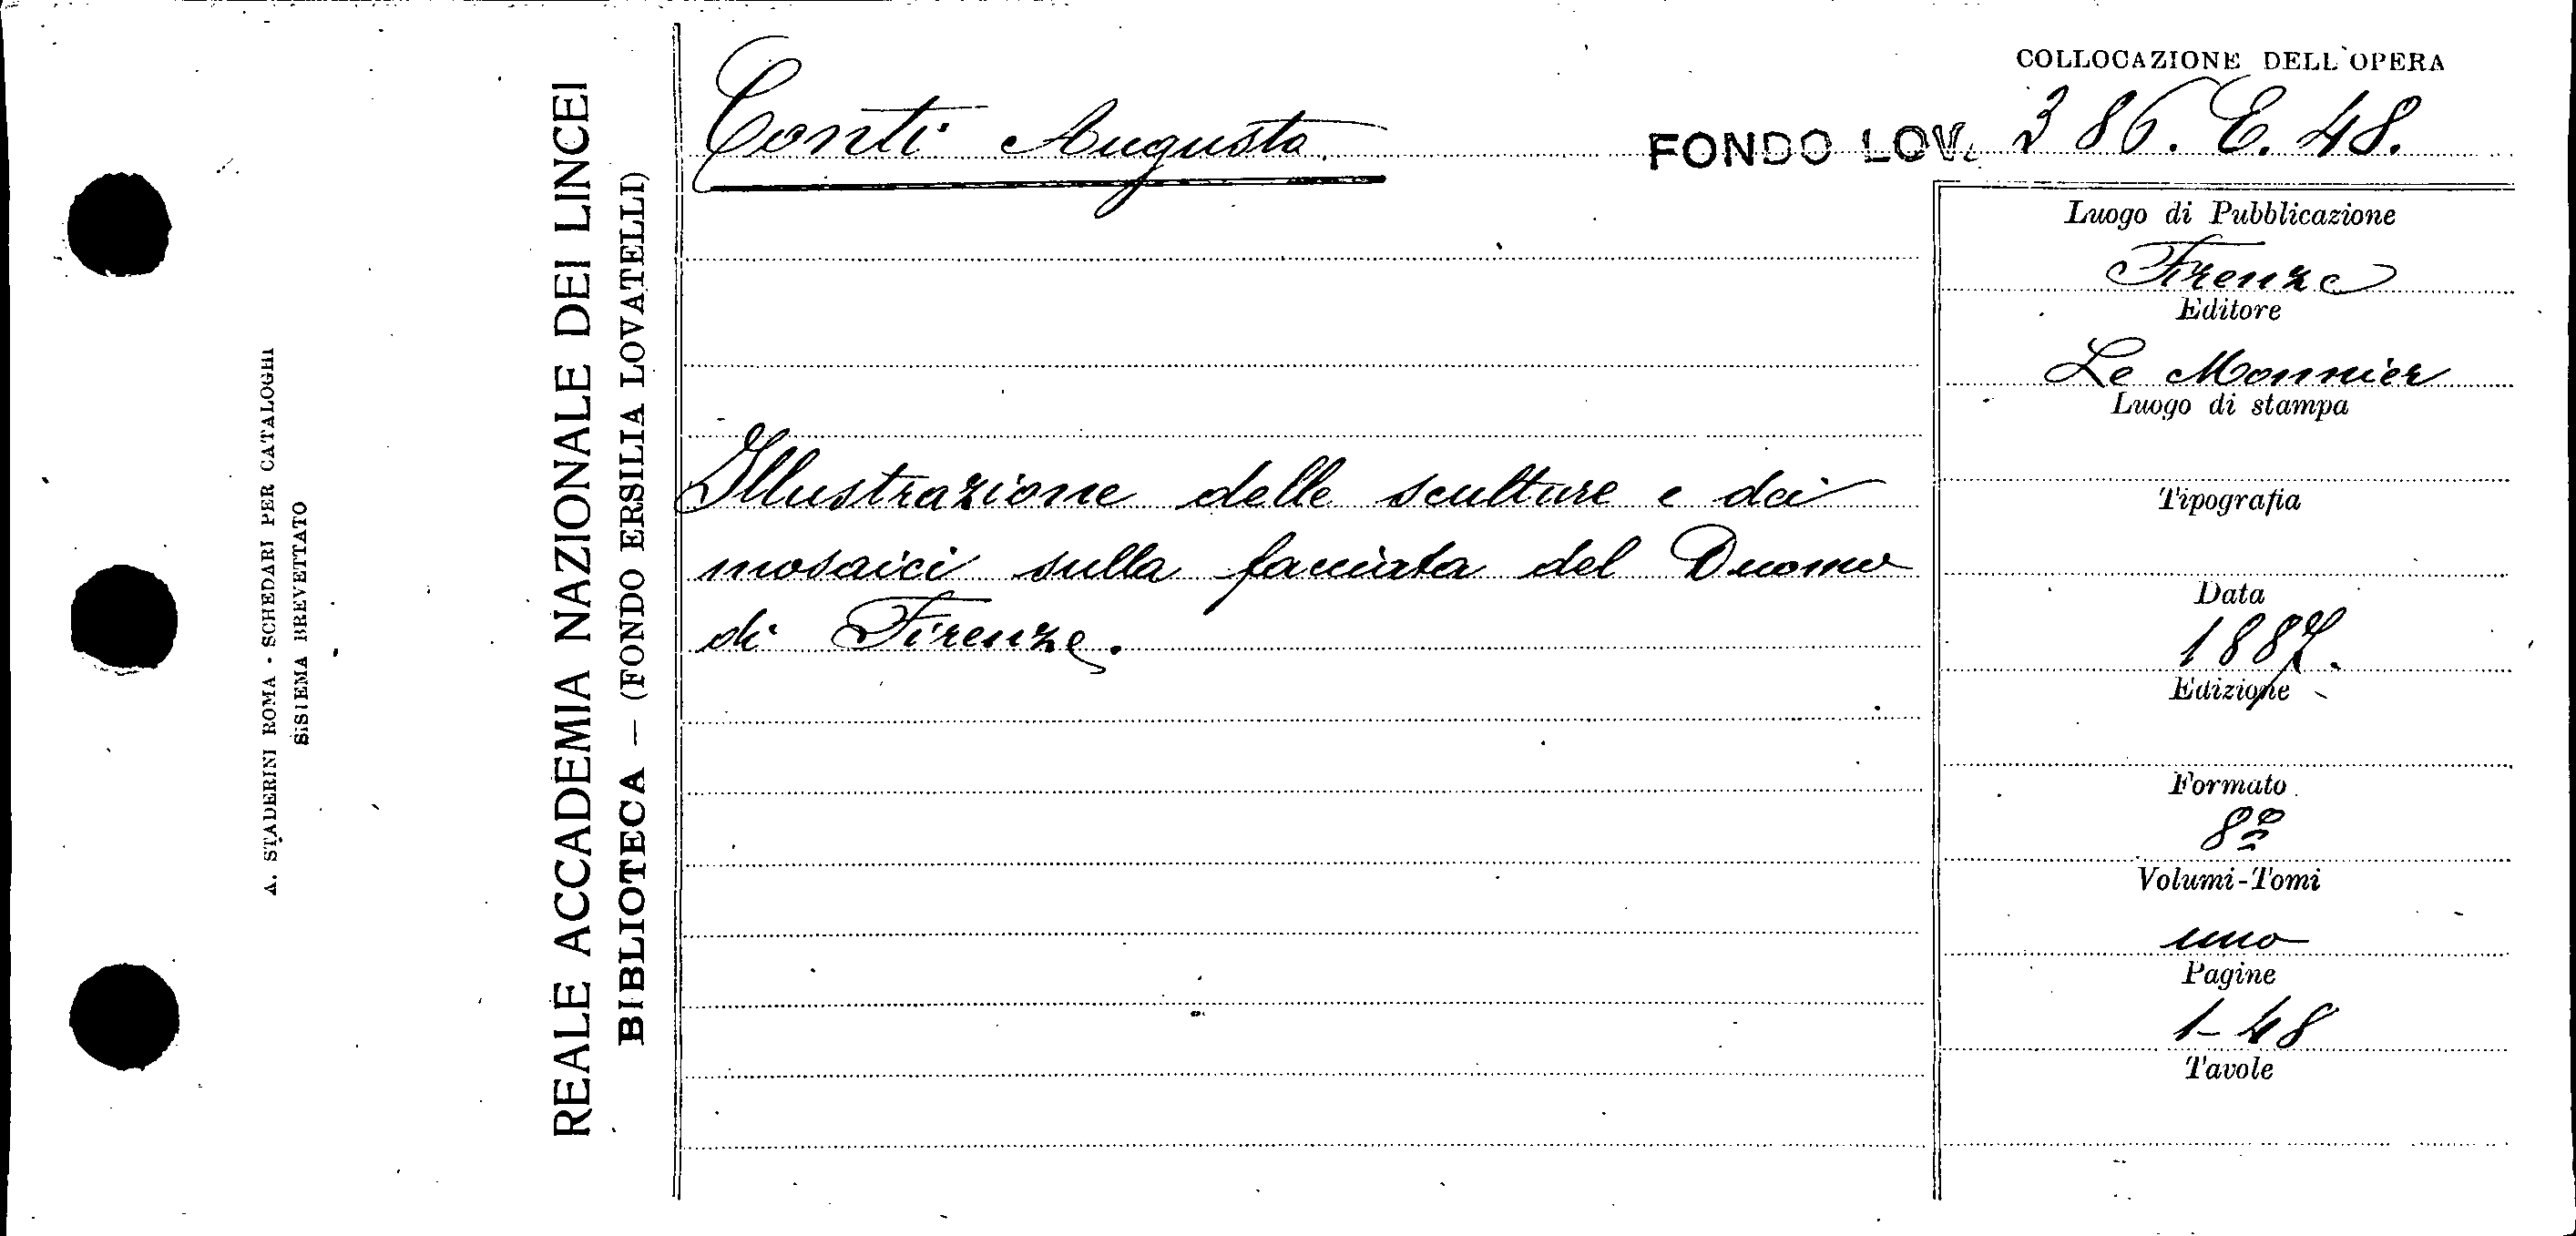 A. STADERINI ROMA - SCHEDARI PER CATALOGHI
SISTEMA BREVETTATO
REALE ACCADEMIA NAZIONALE DEI LINCEI
BIBLIOTECA — (FONDO ERSILIA LOVATELLI)
COLLOCAZIONE DELL'OPERA
Conti Augusto
FONDO LOV. 386. E. 48.
Illustrazione delle sculture e dei
mosaici sulla facciata del Duomo
di Firenze.
Luogo di Pubblicazione
Firenze
Editore
Le Monnier
Luogo di stampa
Tipografia
Data
1887.
Edizione
Formato
8º
Volumi-Tomi
uno
Pagine
1-48
Tavole